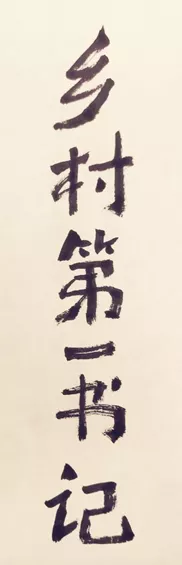 乡村第一书记